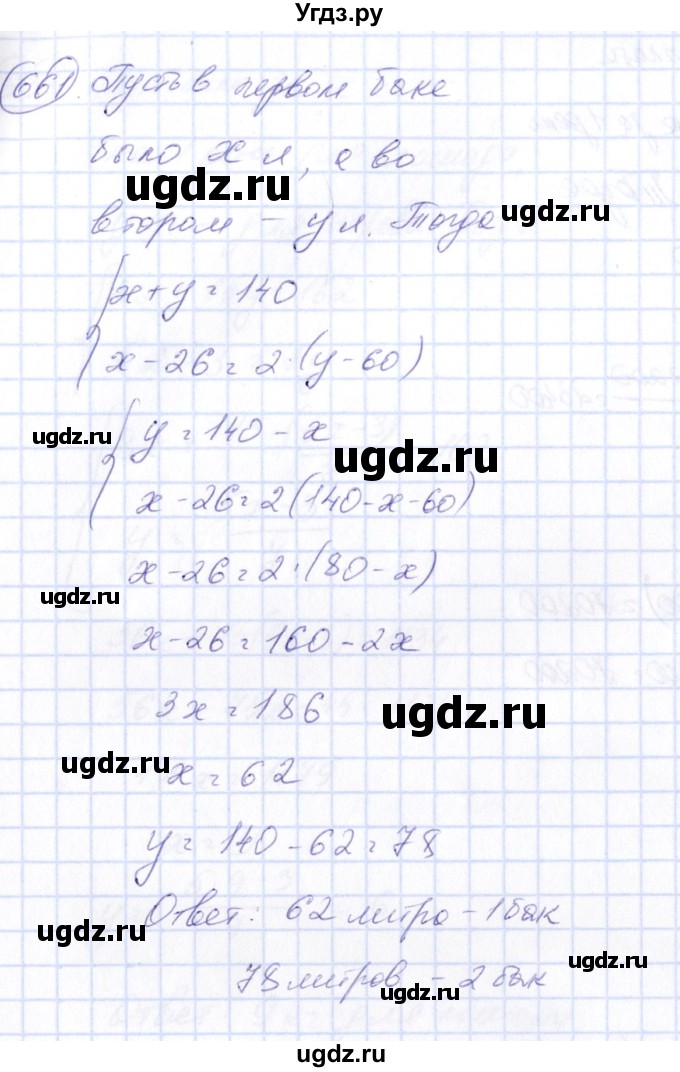 Угдз.ру
661. Пусть в первом баке
было x л, а во
ugdz.ru
втором – y л. Тогда
ugdz.ru
x + y = 140
x – 26 = 2·(y – 60)
y = 140 – x
ugdz.ru
ugdz.ru
x – 26 = 2(140 – x – 60)
x – 26 = 2·(80 – x)
ugdz.ru
x – 26 = 160 – 2x
3x = 186
ugdz.ru
ugdz.ru
x = 62
y = 140 – 62 = 78
Ответ: 62 литра – 1 бак
ugdz.ru
ugdz.ru
78 литров – 2 бак
ugdz.ru
ugdz.ru